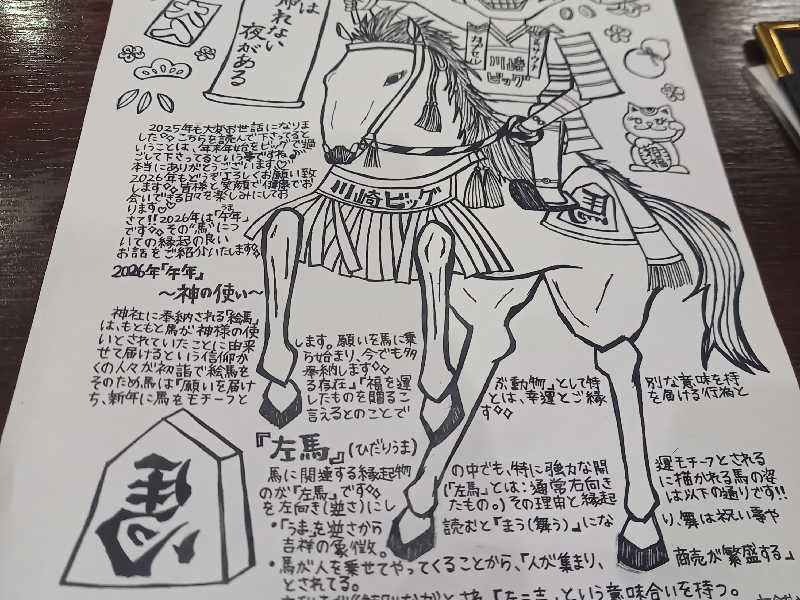 は
帰れない
夜がある
川崎
ビッグ
川崎ビッグ
2025年も大変お世話になりま
した◇◇こちらを読んで下さってると
いうことは、年末年始をビッグで過
ごして下さってるという事ですね♪
本当にありがとうございます♡
2026年もどうぞよろしくお願い致
します◇◇皆様と笑顔で健康でお
会いできる日々を楽しみにしてお
ります♡
さて!!2026年は「午年」
うま
です◇◇その"馬"につ
いての縁起の良い
お話をご紹介いたします◇◇
2026年「午年」
～神の使い～
神社に奉納される「絵馬」
は、もともと馬が神様の使
いとされていたことに由来 します。願いを馬に乗
せて届けるという信仰か ら始まり、今でも多
くの人々が初詣で絵馬を 奉納します◇◇
そのため馬は「願いを届け る存在」「福を運 ぶ動物」として特 別な意味を持
ち、新年に馬をモチーフと したものを贈るこ とは、幸運とご縁 を届ける行為と
言えるとのことで す◇◇
『左馬』(ひだりうま)
馬に関連する縁起物 の中でも、特に強力な開 運モチーフとされる
のが「左馬」です◇◇ (「左馬」とは:通常右向き に描かれる馬の姿
を左向き(逆さ)にし たもの。)その理由と縁起 は以下の通りです!!
・「うま」を逆さから 読むと「まう(舞う)」にな り、舞は祝い事や
吉祥の象徴。
・馬が人を乗せてやってくることから、「人が集まり、 商売が繁盛する」
とされてる。
という意味合いを持つ。